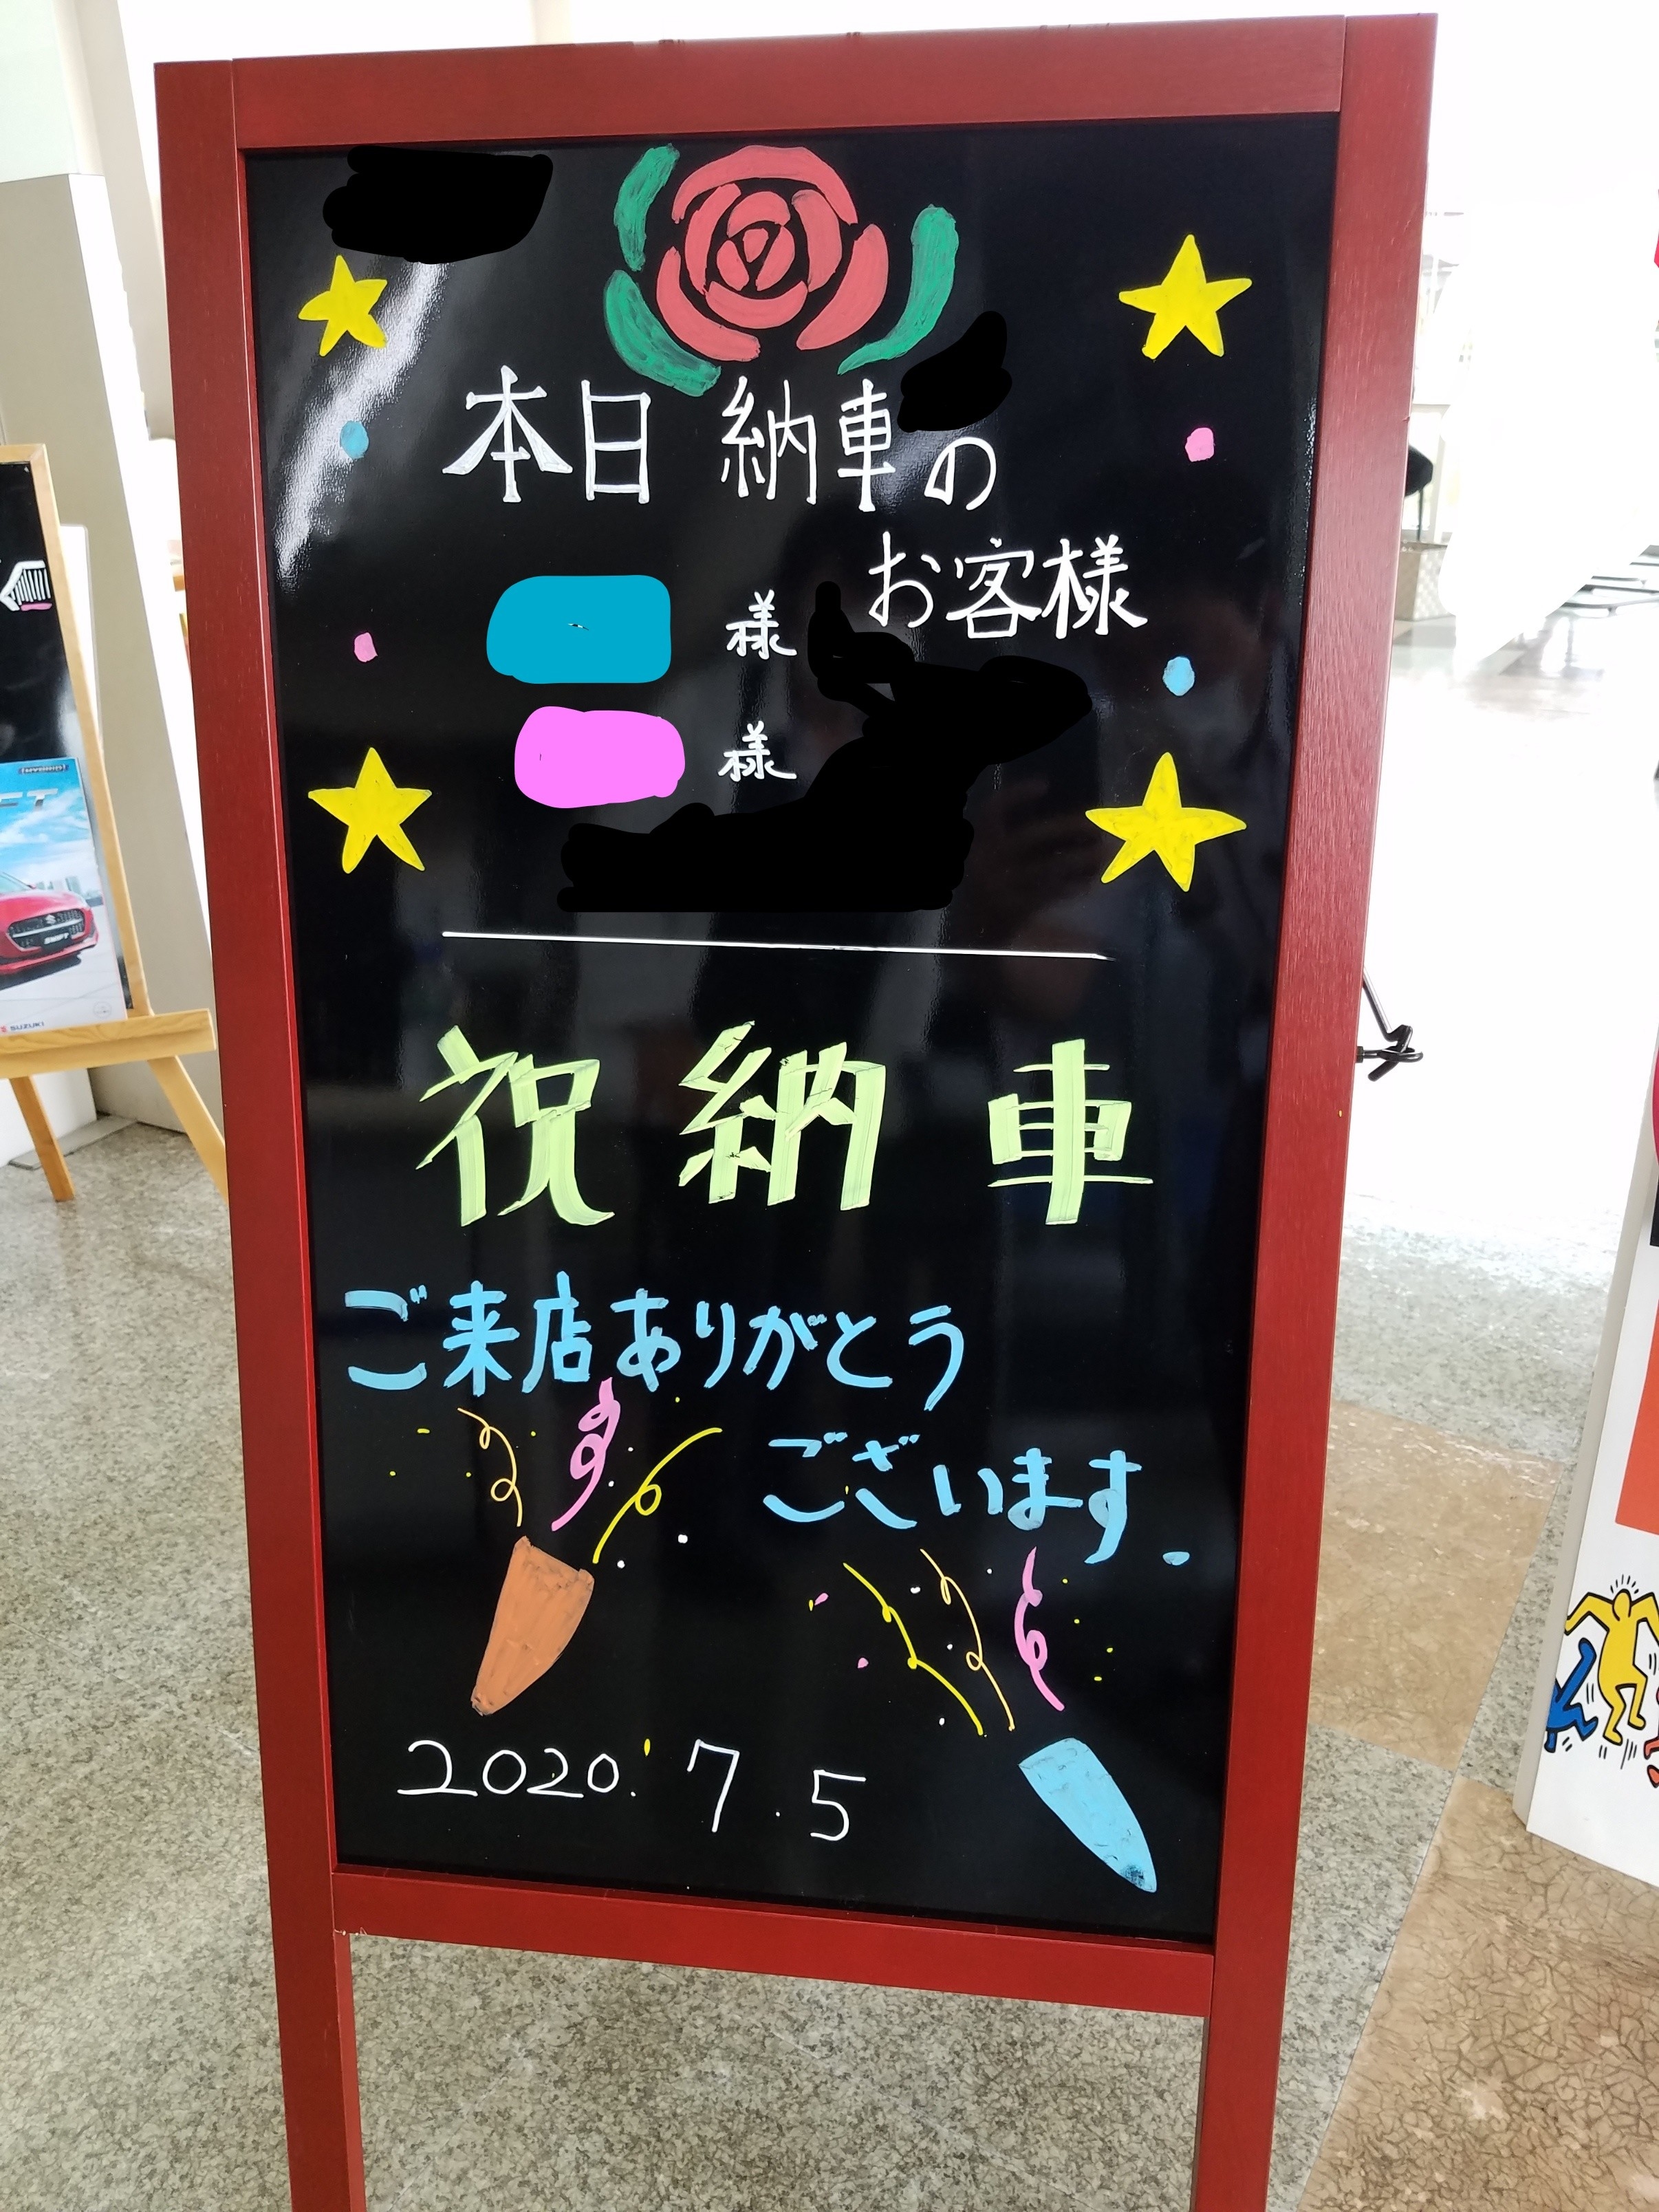 本日 納車の
お客様
様
様
祝納車
ご来店ありがとう
ございます.
2020. 7.5
HYBRID
SWIFT
SUZUKI